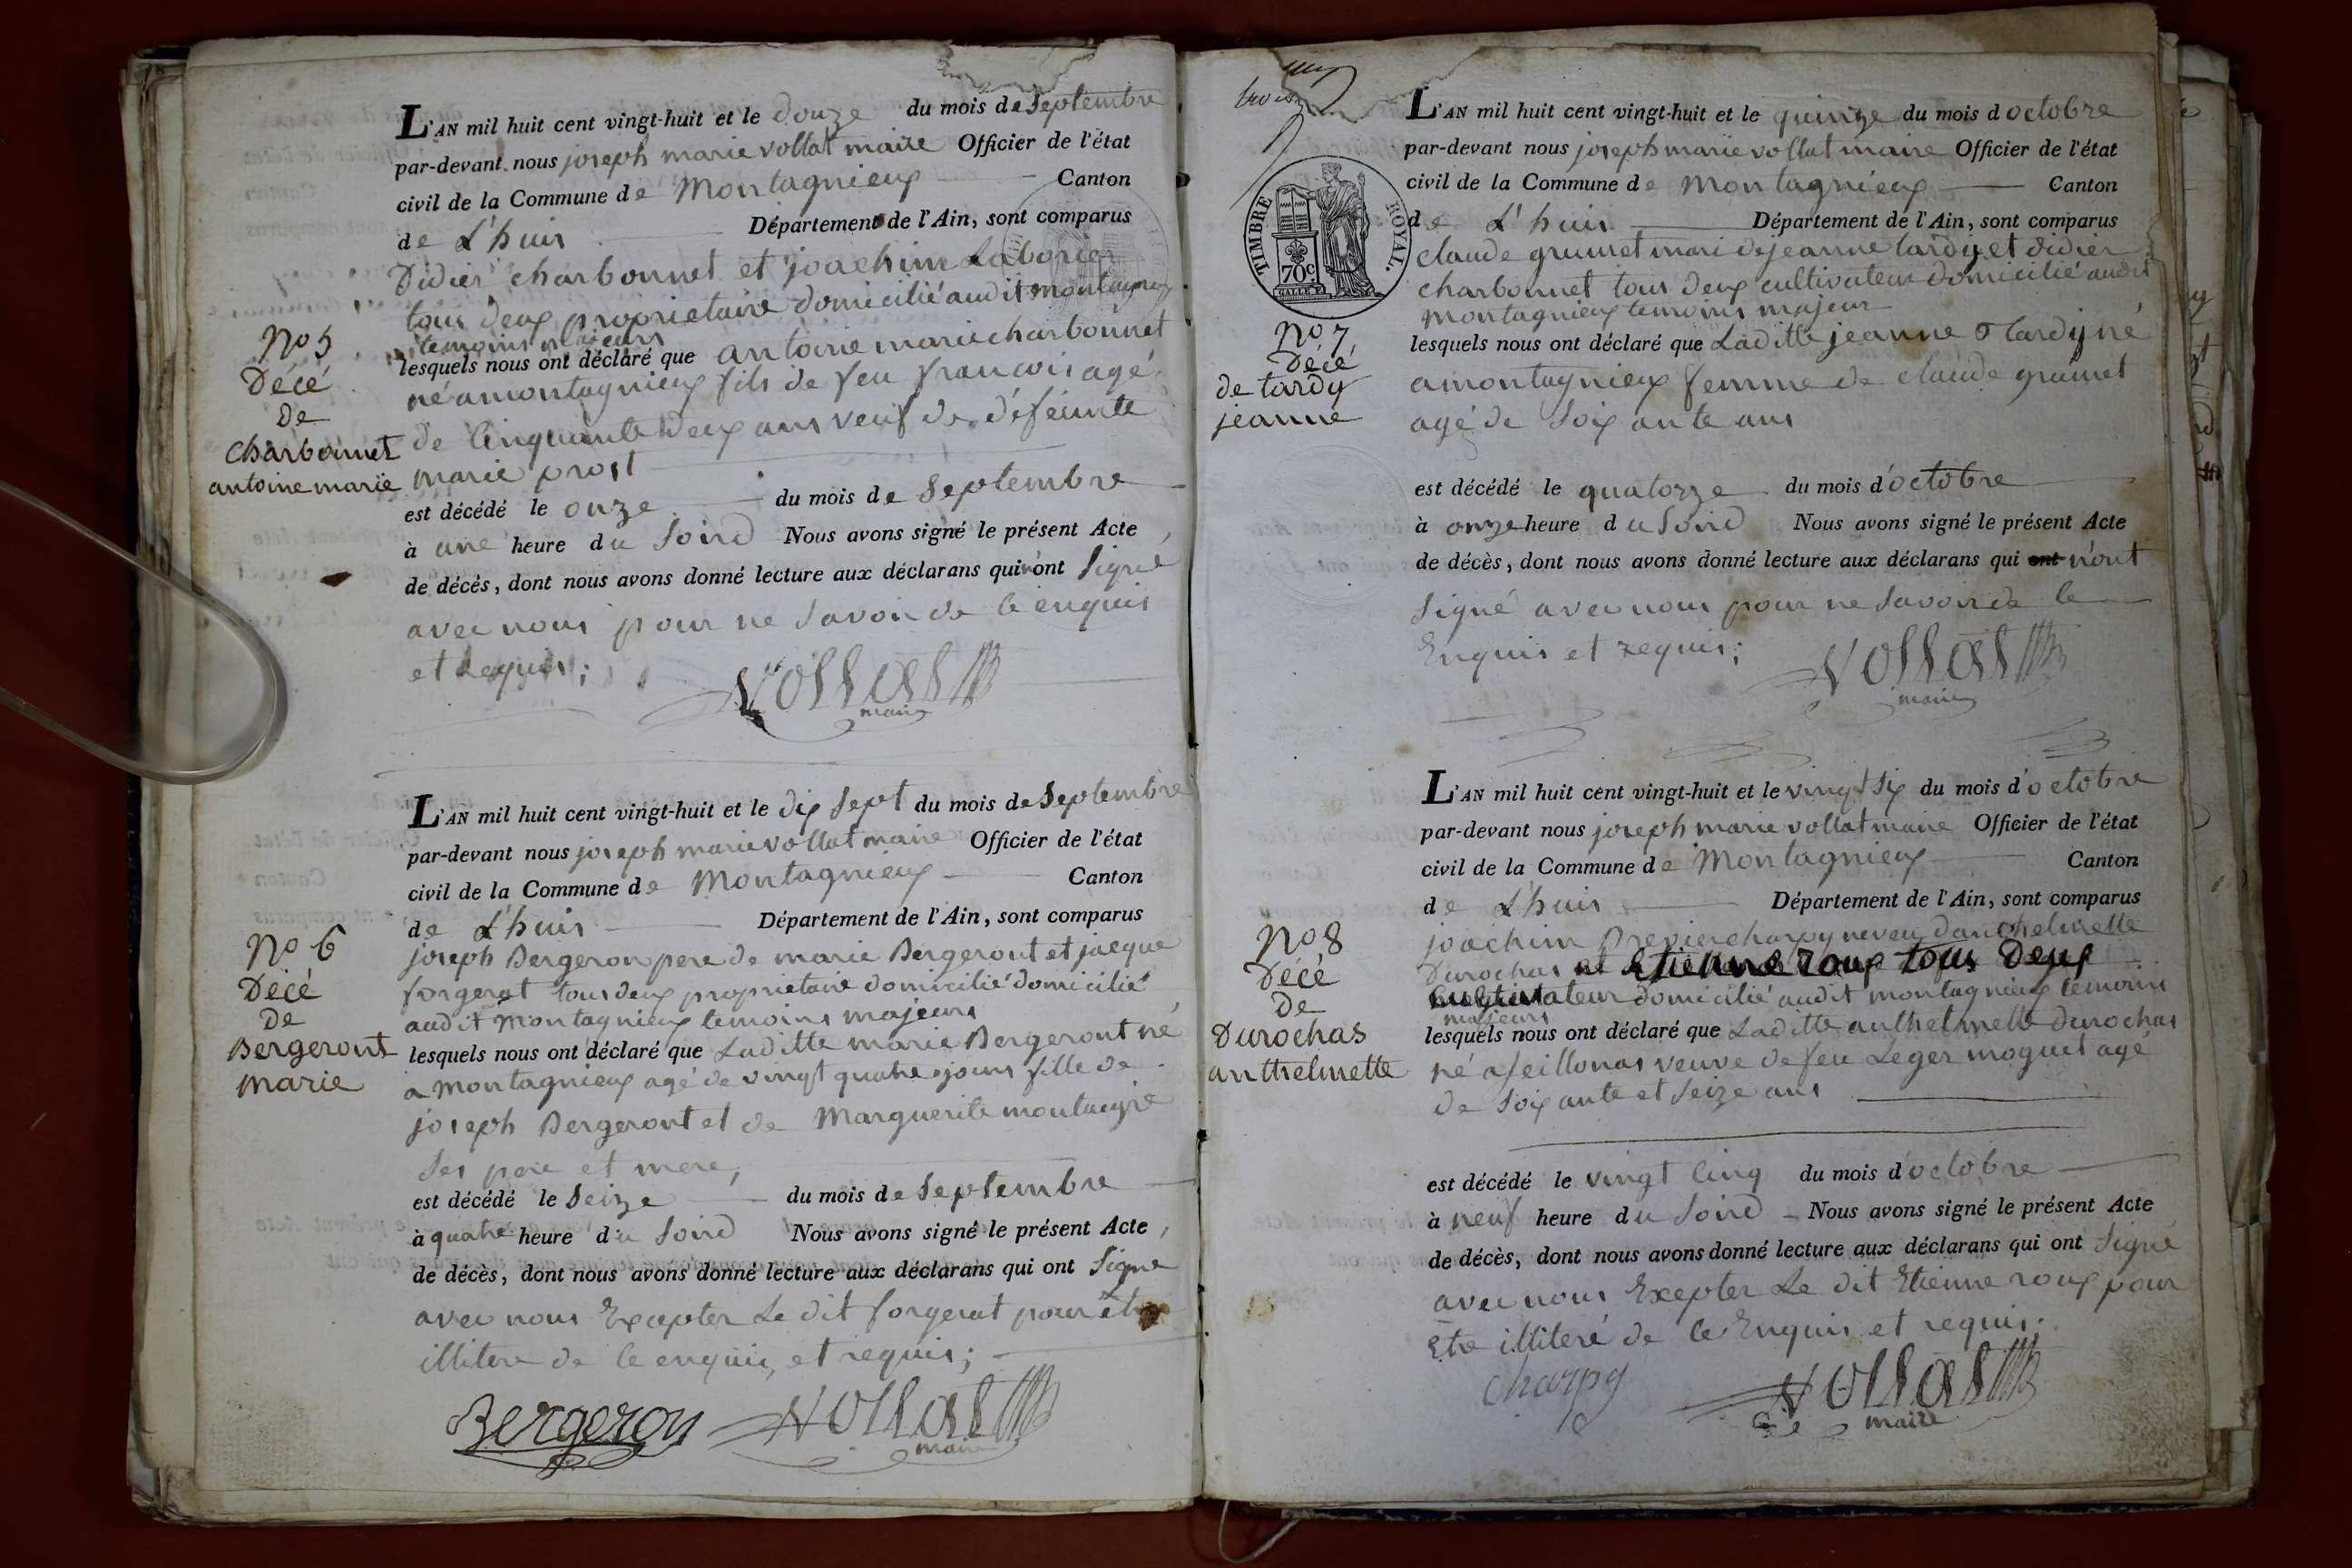 L'AN mil huit cent vingt-huit et le douze du mois de Septembre
par-devant nous joseph marie vollat maire Officier de l'état
civil de la Commune de Montagnieux Canton
de L'huis Département de l'Ain, sont comparus
Didier charbonnet et joachim Laborier
tous deux proprietaire domicilié audit montagnieux
temoins majeurs
No 5
Décé
De
Charbonnet
antoine marie
lesquels nous ont déclaré que antoine marie charbonnet
né a montagnieux fils de feu francois agé
de Cinquante deux ans veuf de déféunte
marie prost
est décédé le onze du mois de Septembre
à une heure du Soird Nous avons signé le présent Acte
de décès, dont nous avons donné lecture aux déclarans qui n'ont Signé
avec nous pour ne Savoir de ce enquis
et Requis;
vollat
maire
L'AN mil huit cent vingt-huit et le dix Sept du mois de Septembre
par-devant nous joseph marie vollat maire Officier de l'état
civil de la Commune de Montagnieux Canton
de L'huis Département de l'Ain, sont comparus
joseph Bergeron pere de marie Bergeront et jacque
forgerat tous deux proprietaire domicilié domicilié
audit Montagnieux temoins majeurs
No 6
Décé
De
Bergeront
marie
lesquels nous ont déclaré que Laditte marie Bergeront né
a Montagnieux agé de vingt quatre jours fille de
joseph Bergeront et de Marguerite montagne
Ses pere et mere,
est décédé le Seize du mois de Septembre
à quatre heure du Soird Nous avons signé le présent Acte,
de décès, dont nous avons donné lecture aux déclarans qui ont Signe
avec nous Excepter Le dit forgerat pour être
illitere de ce enquis, et requis;
Bergeron vollat
maire
trois
TIMBRE ROYAL.
70c
L'AN mil huit cent vingt-huit et le quinze du mois d octobre
par-devant nous joseph marie vollat maire Officier de l'état
civil de la Commune de Montagnieux Canton
de L'huis Département de l'Ain, sont comparus
claude grumet mari de jeanne tardy et didier
charbonnet tous deux cultivateur domicilié audit
montagnieux temoins majeur
No 7
Décé
de tardy
jeanne
lesquels nous ont déclaré que Laditte jeanne Tardy né
a montagnieux femme de claude grumet
agé de Soixante ans
est décédé le quatorze du mois d'octobre
à onze heure du Soird Nous avons signé le présent Acte
de décès, dont nous avons donné lecture aux déclarans qui ont n'ont
Signé avec nous pour ne Savoir de ce
Enquis et requis;
vollat
maire
L'AN mil huit cent vingt-huit et le vingt Six du mois d'octobre
par-devant nous joseph marie vollat maire Officier de l'état
civil de la Commune de Montagnieux Canton
de L'huis Département de l'Ain, sont comparus
joachim charpy neveu d'anthelmette
Durochas et Etienne roux tous Deux
Cultivateur domicilié audit montagnieux temoins
majeurs
No 8
Décé
De
Durochas
anthelmette
lesquels nous ont déclaré que Laditte anthelmette Durochas
né a Seillonas veuve de feu Leger moguet agé
de Soixante et Seize ans
est décédé le vingt Cinq du mois d'octobre
à neuf heure du Soird Nous avons signé le présent Acte
de décès, dont nous avons donné lecture aux déclarans qui ont Signé
avec nous Exepter Le dit Etienne roux pour
Etre illiteré de ce Enquis et requis.
charpy vollat
maire